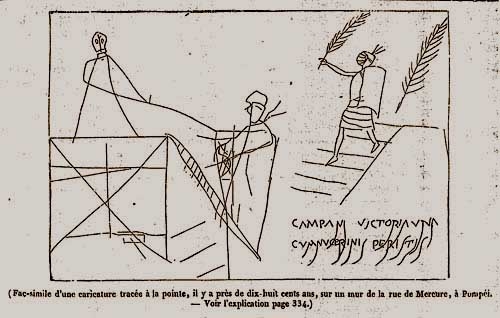 CAMPANI VICTORIA VNA
CVM NVCERINIS PERISTIS
(Fac-simile d'une caricature tracée à la pointe, il y a près de dix-huit cents ans, sur un mur de la rue de Mercure, à Pompéi.
— Voir l'explication page 334.)